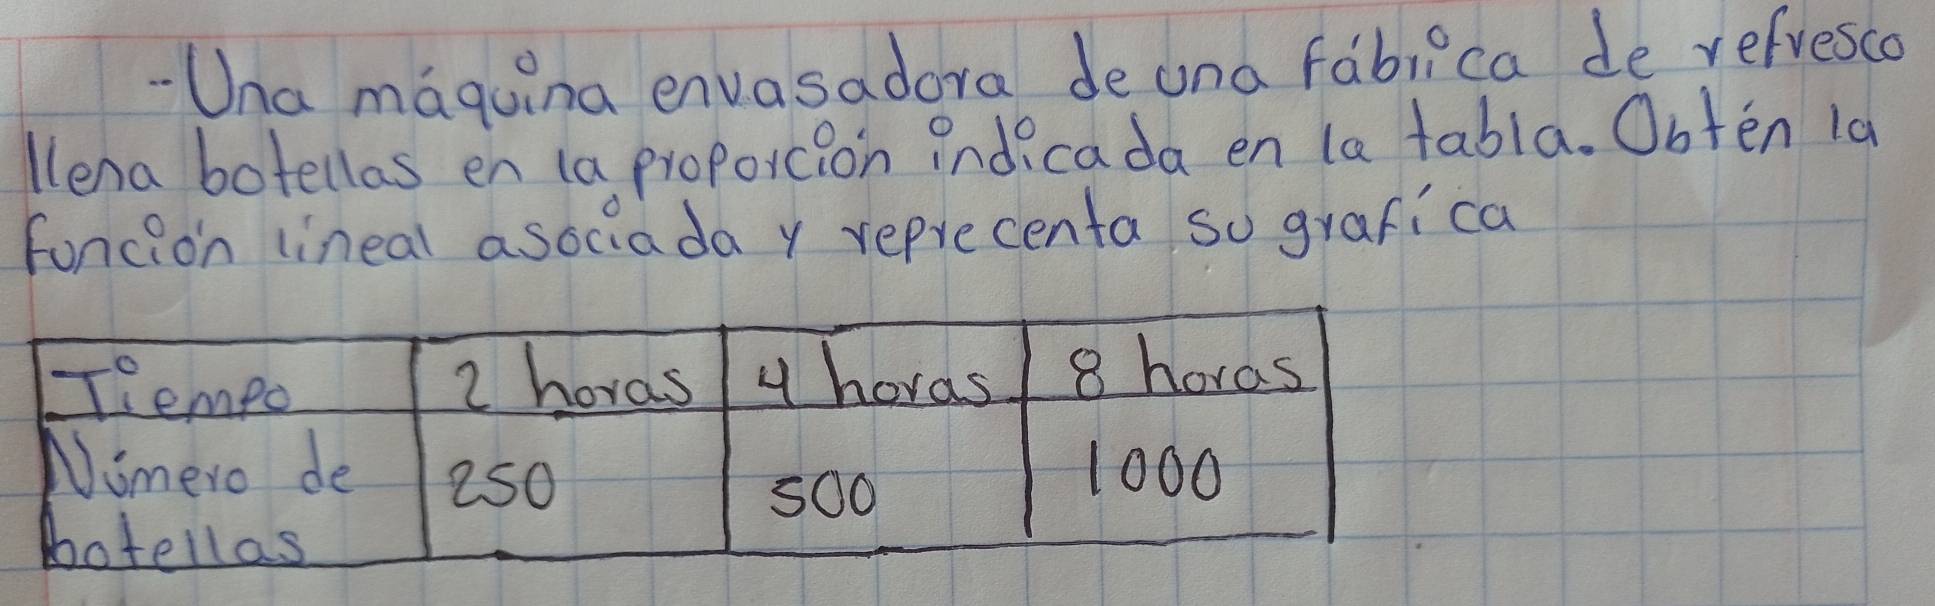 -Una máquina envasadora de una fábrica de refresco
llena botellas en la proporción indicada en la tabla. Obtén la
función lineal asociada y reprecenta su grafíca
Tiempo 2 horas 4 horas 8 horas
Número de 250 500 1000
botellas